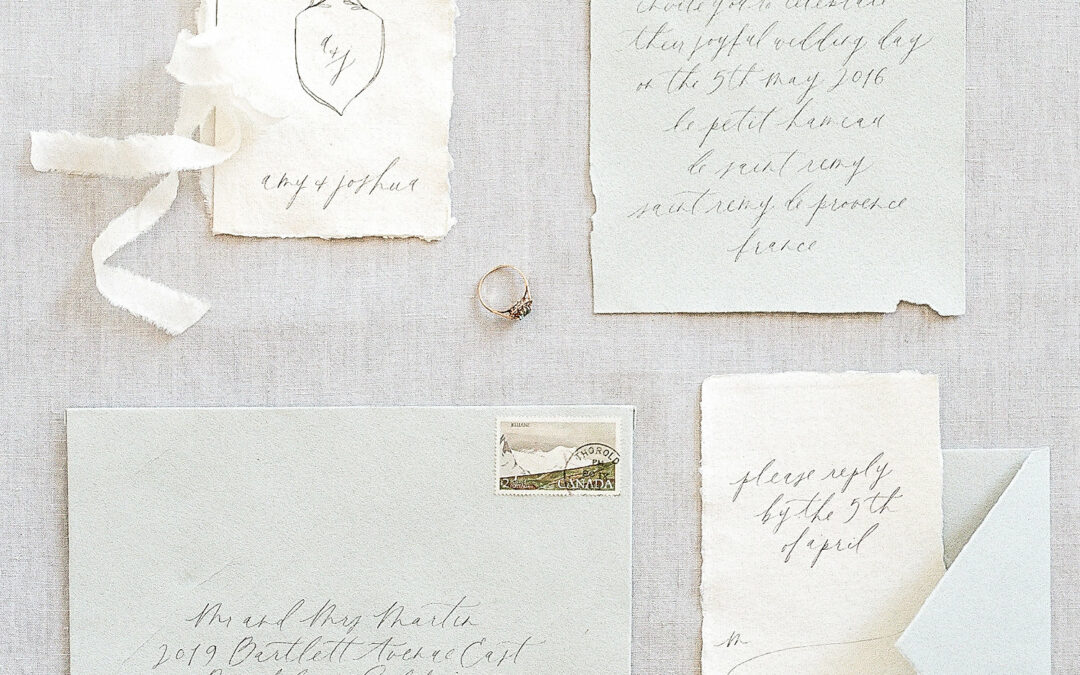 a + j
amy + joshua
invite you to celebrate
their joyful wedding day
on the 5th may 2016
le petit hameau
de saint remy
saint remy de provence
france
KLUANE
THOROLD
CANADA
2
Mr and Mrs Martin
2019 Bartlett Avenue East
please reply
by the 5th
of april
M